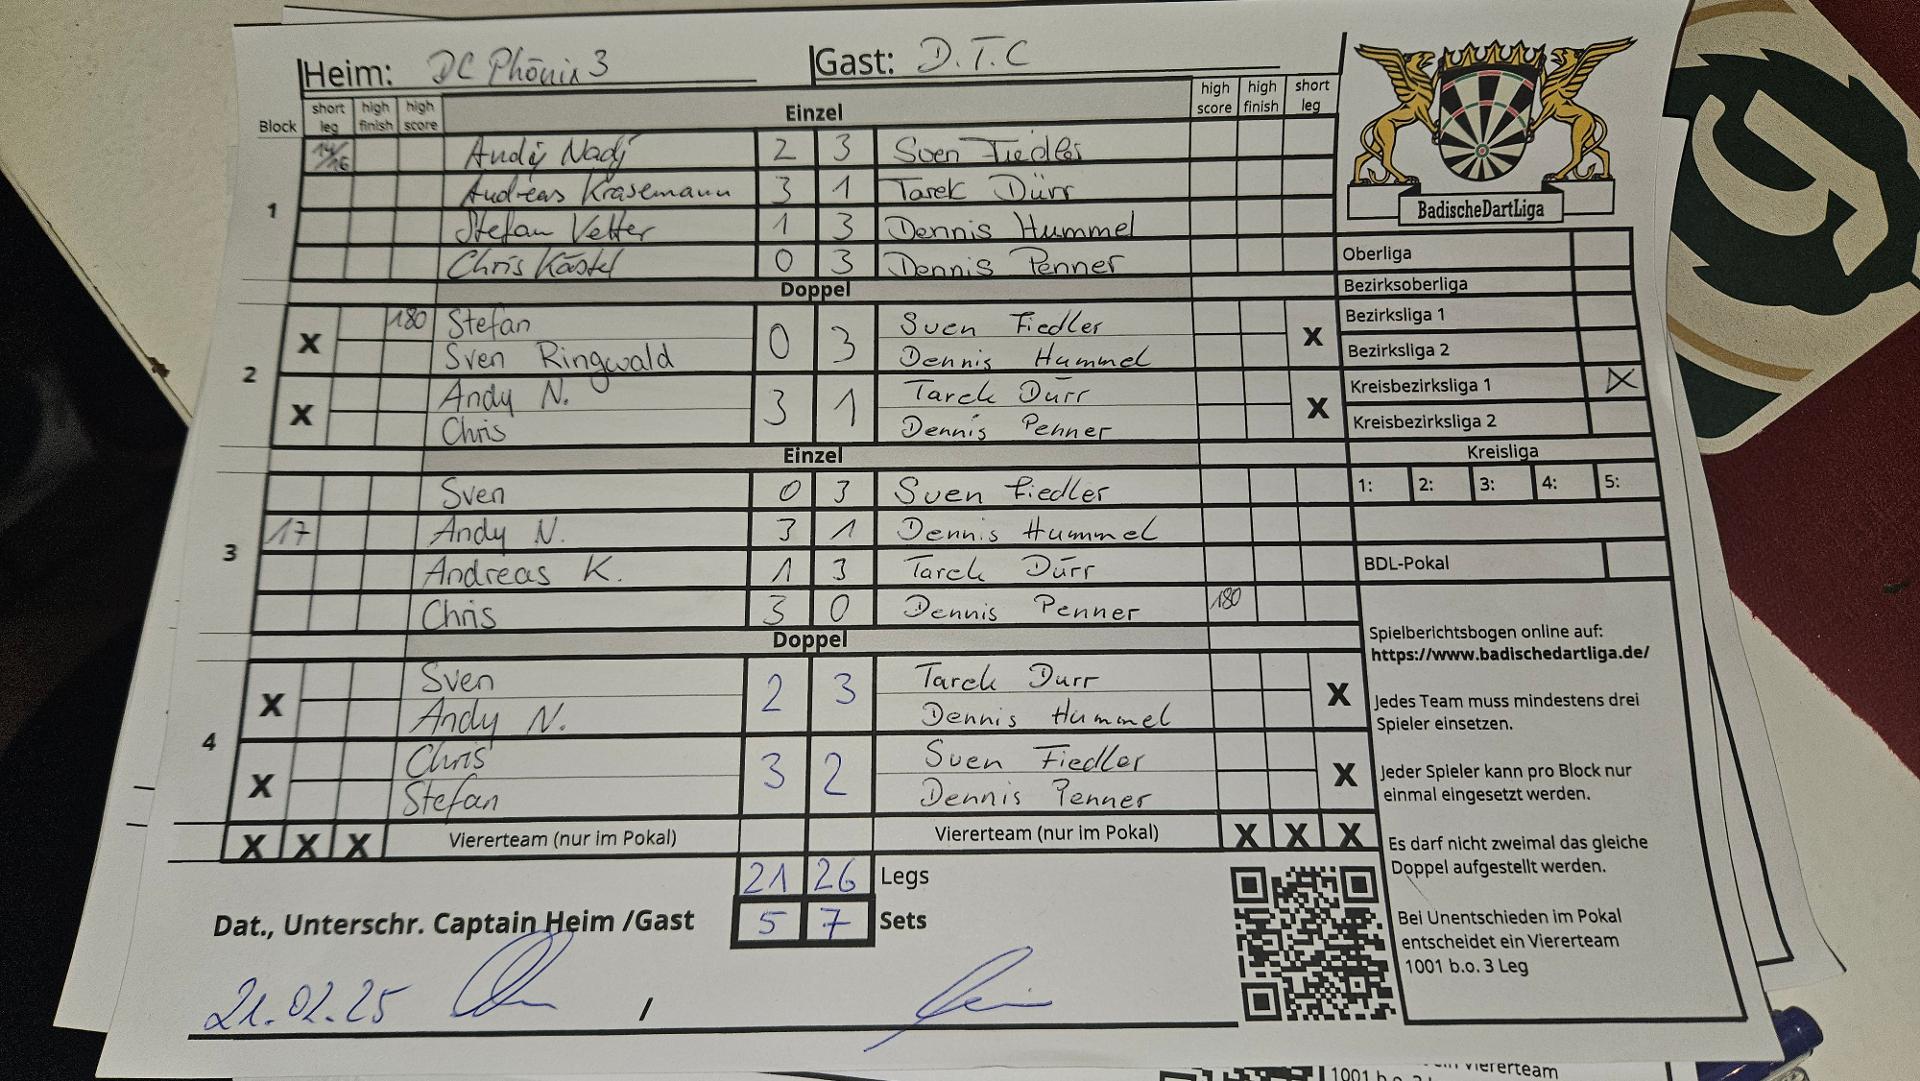 Heim: DC Phönix 3 Gast: D.T.C
Block short leg high finish high score Einzel high score high finish short leg
1
14/16 Andy Nadj 2 3 Sven Fiedler
Andreas Krasemann 3 1 Tarek Dürr
Stefan Vetter 1 3 Dennis Hummel
Chris Kästel 0 3 Dennis Penner
Doppel
2
X 180 Stefan 0 3 Sven Fiedler X
Sven Ringwald Dennis Hummel
X Andy N. 3 1 Tarek Dürr X
Chris Dennis Penner
Einzel
3
Sven 0 3 Sven Fiedler
17 Andy N. 3 1 Dennis Hummel
Andreas K. 1 3 Tarek Dürr
Chris 3 0 Dennis Penner 180
Doppel
4
X Sven 2 3 Tarek Durr X
Andy N. Dennis Hummel
X Chris 3 2 Sven Fiedler X
Stefan Dennis Penner
X X X Viererteam (nur im Pokal) Viererteam (nur im Pokal) X X X
21 26 Legs
Dat., Unterschr. Captain Heim /Gast 5 7 Sets
21.02.25 /
BadischeDartLiga
Oberliga
Bezirksoberliga
Bezirksliga 1
Bezirksliga 2
Kreisbezirksliga 1 X
Kreisbezirksliga 2
Kreisliga
1: 2: 3: 4: 5:
BDL-Pokal
Spielberichtsbogen online auf:
https://www.badischedartliga.de/
Jedes Team muss mindestens drei
Spieler einsetzen.
Jeder Spieler kann pro Block nur
einmal eingesetzt werden.
Es darf nicht zweimal das gleiche
Doppel aufgestellt werden.
Bei Unentschieden im Pokal
entscheidet ein Viererteam
1001 b.o. 3 Leg
Viererteam
1001 b.o.